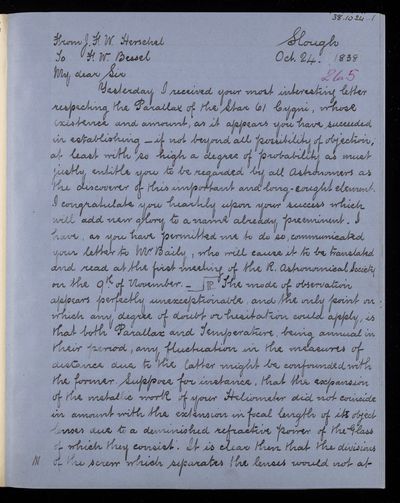 38.10 24.1
From J. F. W. Herschel
Slough
To F. W. Bessel
Oct. 24. 1838
My dear Sir
265
Yesterday I received your most interesting letter
respecting the Parallax of the Star 61 Cygni, whose
existence and amount, as it appears you have succeeded
in establishing — if not beyond all possibility of objection,
at least with so high a degree of probability as must
justly entitle you to be regarded by all Astronomers as
the discoverer of this important and long-sought element.
I congratulate you heartily upon your success which
will add new glory to a name already preeminent. I
have, as you have permitted me to do so, communicated
your letter to Mr Baily, who will cause it to be translated
and read at the first meeting of the R. Astronomical Society
on the 9th of November. — The mode of observation
appears perfectly unexceptionable, and the only point on
which any degree of doubt or hesitation could apply, is
that both Parallax and Temperature, being annual in
their period, any fluctuation in the measures of
distance due to the latter might be confounded with
the former. Suppose for instance, that the expansion
of the metallic work of your Heliometer did not coincide
in amount with the extension in focal length of its object
lenses due to a diminished refractive power of the Glass
of which they consist. It is clear then that the divisions
of the screw which separates the lenses would not at